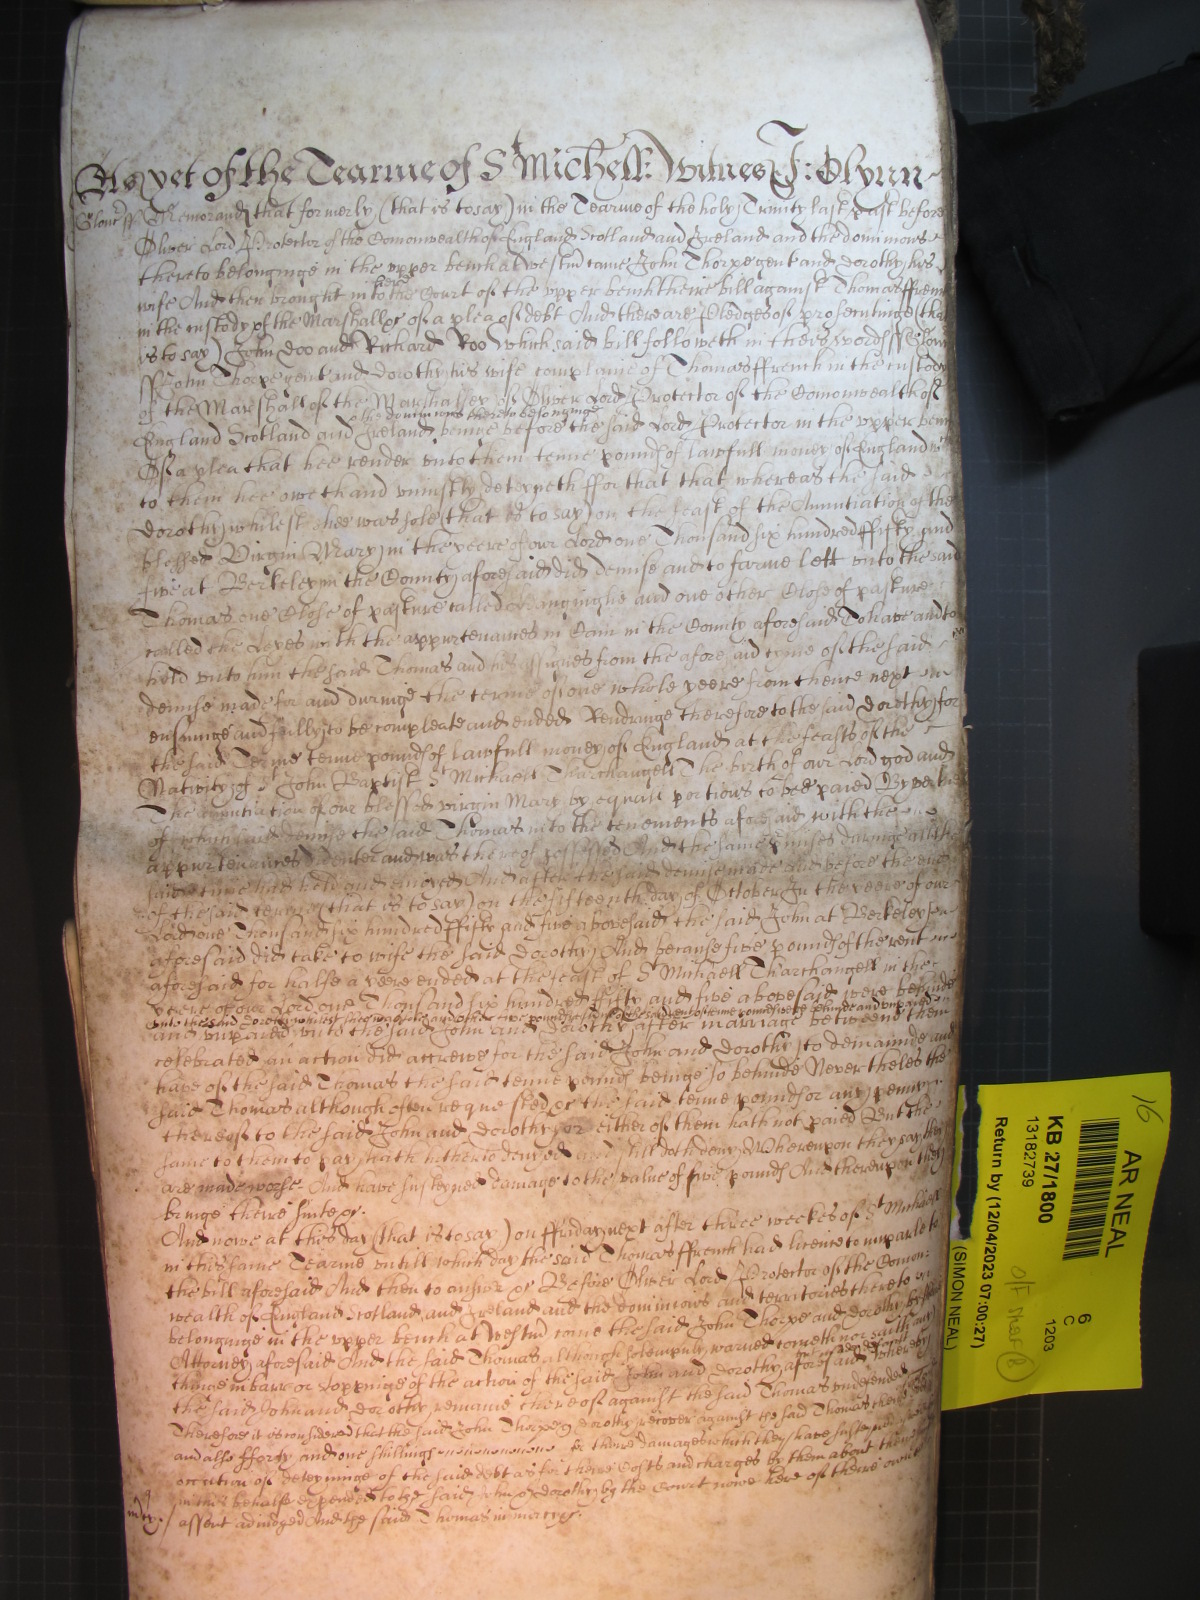 As yet of the Tearme of St Michell: Witnes J: Glynn
Glouc ss Memorand that formerly (that is to say) in the Tearme of the holy Trinity last past before
Oliver Lord Protector of the Comonwealth of England Scotland and Ireland and the dominions
thereto belonginge in the upper bench at Westm came John Thorpe gent and Dorothy his
wife And then brought into the Court of the upper bench theire bill against Thomas ffrench
in the custody of the Marshall &c of a plea of debt And there are Pledges of prosecutinge (that
is to say) John Doo and Richard Roo Which said bill followeth in theis words ss Glouc
ss John Thorpe gent and Dorothy his wife complaine of Thomas ffrench in the custody
of the Marshall of the Marshalsey of Oliver Lord Protector of the Comonwealth of
& the dominions thereto belonginge
England Scotland and Ireland beinge before the said Lord Protector in the upper bench
Of a plea that hee render unto them tenne pounds of lawfull money of England wch
to them hee oweth and uniustly deteyneth ffor that that whereas the said
Dorothy whilest shee was sole (that is to say) on the feast of the Anuntiation of the
blessed Virgin Mary in the yeere of our Lord one Thousand six hundred ffifty and
five at Berkeley in the County aforesaid did demise and to farme lett unto the said
Thomas one Close of pasture called and one other Close of pasture
called the Leyes with the appurtenances in Cam in the County aforesaid To have and to
hold unto him the said Thomas and his assignes from the aforesaid tyme of the said
demise made for and duringe the terme of one whole yeere from thence next
ensuinge and fully to be compleate and ended Rendringe therefore to the said Dorothy for
the said Terme tenne pounds of lawfull money of England at the feasts of the
Nativity of St John Baptist St Michaell Tharchangell The birth of our Lord god and
The anuntiation of our blessed virgin Mary by equall portions to bee paied By vertue
of which said demise the said Thomas into the tenements aforesaid with the
appurtenances did enter and was thereof possessed And the same premises duringe all the
said terme had held and enioyed And after the said demise made and before the end
of the said terme (that is to say) on the fifteenth day of October In the yeere of our
Lord one Thousand six hundred ffifty and five abovesaid the said John at Berkeley
aforesaid did take to wife the said Dorothy And because five pounds of the rent
aforesaid for halfe a yeere ended at the feast of St Michaell Tharchangell in the
yeere of our Lord one Thousand six hundred ffifty and five abovesaid were behinde
unto the said Dorothy whilest shee was sole and other five pounds of the said rent of tenne pounds were behinde and unpaied
and unpaied unto the said John and Dorothy after marriage betweene them
celebrated an action did accrewe for the said John and Dorothy to demaunde and
have of the said Thomas the said tenne pounds beinge so behinde Nevertheles the
said Thomas although often requested &c the said tenne pounds or any penny
thereof to the said John and Dorothy or either of them hath not paied But the
same to them to pay hath hitherto denyed and still doth deny Whereupon they say they
are made worse And have susteyned damage to the value of five pounds And thereupon they
bringe theire suite &c.
And nowe at this day (that is to say) on ffriday next after three weekes of St Michaell
in this same Tearme untill which day the said Thomas ffrench had licence to imparle to
the bill aforesaid And then to answer &c Before Oliver Lord Protector of the Comon-
wealth of England Scotland and Ireland and the dominions and territories thereto
belonginge in the upper bench at Westm come the said John Thorpe and Dorothy by their
Attorney aforesaid And the said Thomas although solempnly warned cometh not nor saith any
thinge in barr or stoppinge of the action of the said John and Dorothy aforesaid whereby
the said John and Dorothy remaine thereof against the said Thomas undefended
Therefore it is considered that the said John Thorpe & Dorothy recover against the said Thomas theire debt
and also fforty and one shillings for theire damages which they have susteyned
occasion of deteyninge of the said debt as for theire Costs and charges by them about theire suite
in this behalfe expended to the said John & Dorothy by the Court nowe here of theire owne
assent adiudged And the said Thomas in mercy &c.
mercy.
16
AR NEAL
KB 27/1800
13182739
Return by (12/04/2023 07:00:27)
(SIMON NEAL)
6
C
120